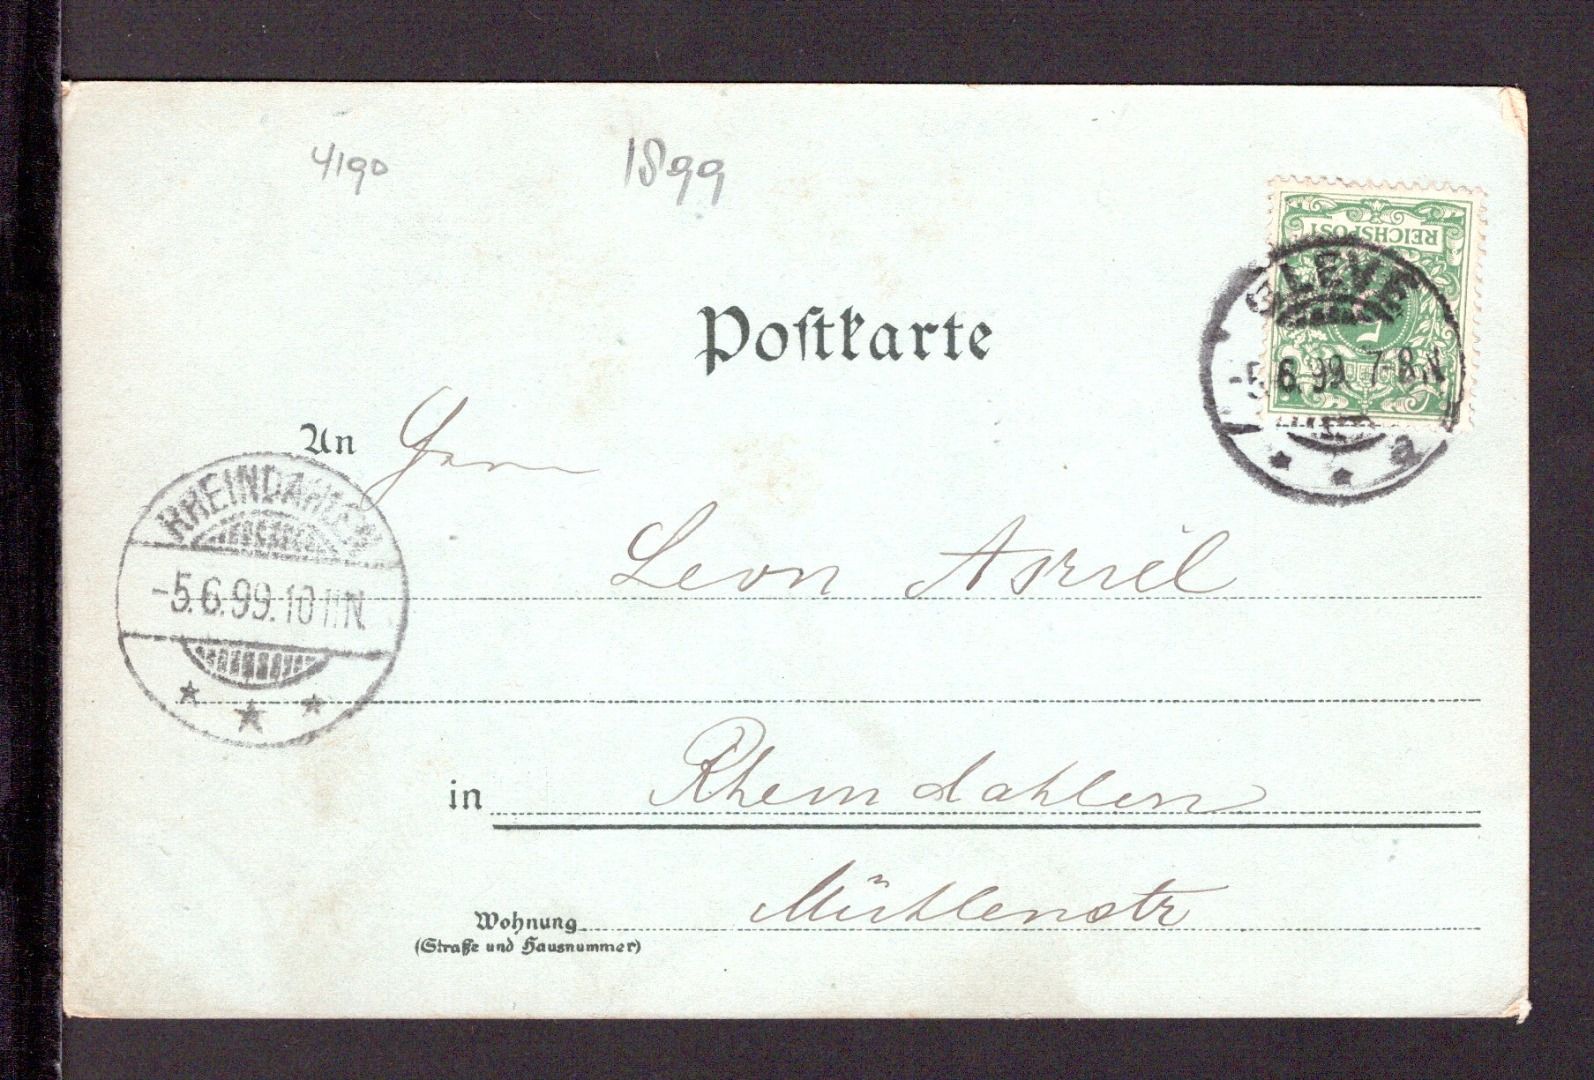 4190
1899
REICHSPOST
5
CLEVE
-5.6.99 7-8.N
a
Postkarte
An Herrn
RHEINDAHLEN
-5.6.99.10 N.
Leon
in Rheindahlen
Wohnung Mühlenstr
(Straße und Hausnummer)